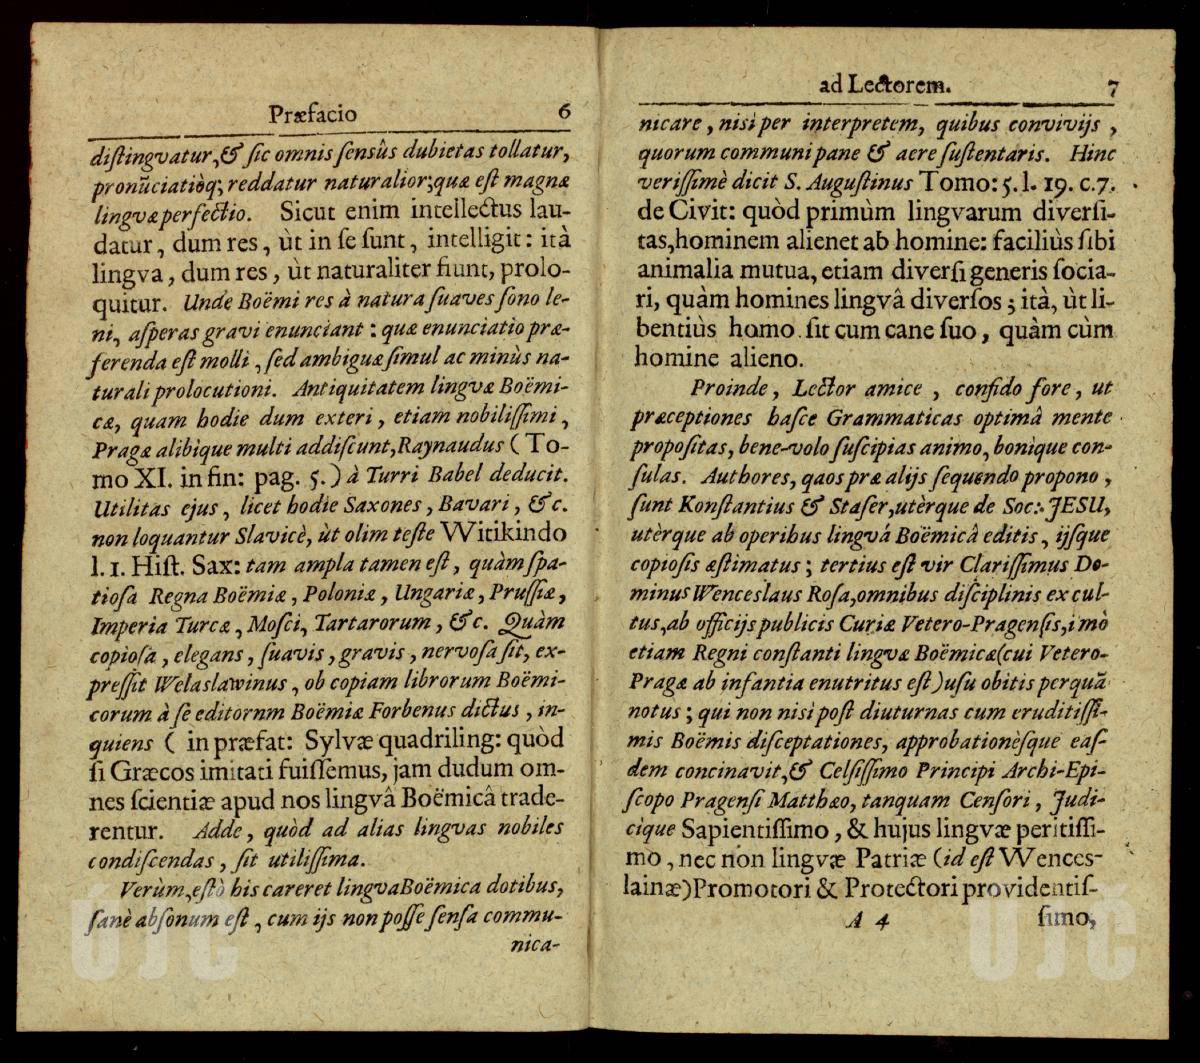 Præfacio 6
diſtingvatur, & ſic omnis ſensûs dubietas tollatur,
pronũciatióq; reddatur naturalior; quæ eſt magnæ
lingvæ perfectio. Sicut enim intellectus lau-
datur, dum res, ùt in ſe ſunt, intelligit: ità
lingva, dum res, ùt naturaliter fiunt, prolo-
quitur. Unde Boëmi res à natura ſuaves ſono le-
ni, aſperas gravi enunciant: quæ enunciatio præ-
ferenda eſt molli, ſed ambiguæ ſimul ac minùs na-
turali prolocutioni. Antiquitatem lingvæ Boëmi-
cæ, quam hodie dum exteri, etiam nobiliſſimi,
Pragæ alibìque multi addiſcunt, Raynaudus (To-
mo XI. in fin: pag. 5.) à Turri Babel deducit.
Utilitas ejus, licet hodie Saxones, Bavari, &c.
non loquantur Slavicè, ùt olim teſte Witikindo
l. 1. Hiſt. Sax: tam ampla tamen eſt, quàm ſpa-
tioſa Regna Boëmiæ, Poloniæ, Ungariæ, Pruſſiæ,
Imperia Turcæ, Moſci, Tartarorum, &c. Quàm
copioſa, elegans, ſuavis, gravis, nervoſa ſit, ex-
preſſit Welaslawinus, ob copiam librorum Boëmi-
corum à ſe editornm Boëmiæ Forbenus dictus, in-
quiens ( in præfat: Sylvæ quadriling: quòd
ſi Græcos imitati fuiſſemus, jam dudum om-
nes ſcientiæ apud nos lingvâ Boëmicâ trade-
rentur. Adde, quòd ad alias lingvas nobiles
condiſcendas, ſit utiliſſima.
Verùm, eſtò his careret lingva Boëmica dotibus,
ſanè abſonum eſt, cum ijs non poſſe ſenſa commu-
nica-
ad Lectorem. 7
nicare, niſi per interpretem, quibus convivijs,
quorum communi pane & aere ſuſtentaris. Hinc
veriſſimè dicit S. Auguſtinus Tomo: 5. l. 19. c. 7.
de Civit: quòd primùm lingvarum diverſi-
tas, hominem alienet ab homine: faciliùs ſibi
animalia mutua, etiam diverſi generis ſocia-
ri, quàm homines lingvâ diverſos; ità, ùt li-
bentiùs homo ſit cum cane ſuo, quàm cùm
homine alieno.
Proinde, Lector amice, confido fore, ut
præceptiones haſce Grammaticas optimâ mente
propoſitas, bene-volo ſuſcipias animo, bonìque con-
ſulas. Authores, qaos præ alijs ſequendo propono,
ſunt Konſtantius & Staſer, utèrque de Soc: JESU,
utèrque ab operibus lingvâ Boëmicâ editis, ijſque
copioſis æſtimatus; tertius eſt vir Clariſſimus Do-
minus Wenceslaus Roſa, omnibus diſciplinis excul-
tus, ab officijs publicis Curiæ Vetero-Pragenſis, imò
etiam Regni conſtanti lingvæ Boëmicæ (cui Vetero-
Pragæ ab infantia enutritus eſt) uſu obitis perquã
notus; qui non niſi poſt diuturnas cum eruditiſſi-
mis Boëmis diſceptationes, approbationèſque eaſ-
dem concinavit, & Celſiſſimo Principi Archi-Epi-
ſcopo Pragenſi Matthæo, tanquam Cenſori, Judi-
cìque Sapientiſſimo, & hujus lingvæ peritiſſi-
mo, nec non lingvæ Patriæ (id eſt Wences-
lainæ) Promotori & Protectori providentiſ-
A 4 ſimo,
ÚJČ
ÚJČ